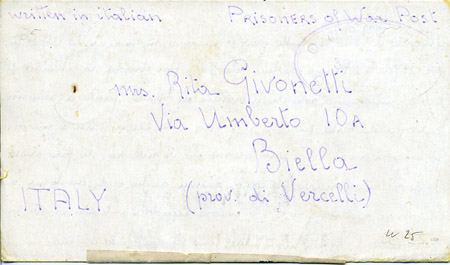 written in italian
Prisoners of War Post
mrs. Rita Givonetti
Via Umberto 10A
Biella
ITALY (prov. di Vercelli)